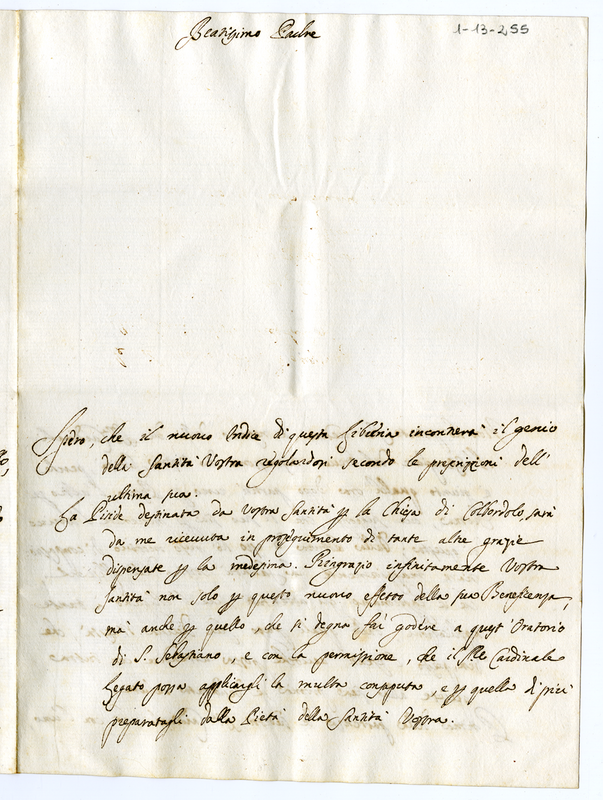 Beatissimo Padre
1-13-255
Spero, che il nuovo Indice di questa Libreria incontrerà il genio
della Santità Vostra regolandosi secondo le prescrizioni dell'
ultima sua.
La Pisside destinata da Vostra Santità per la Chiesa di Colbordolo, sarà
da me ricevuta in proseguimento di tante altre grazie
dispensate per la medesima. Ringrazio infinitamente Vostra
Santità non solo per questo nuovo effetto della sua Beneficenza,
mà anche per quello, che si degna far godere a quest'Oratorio
di S. Sebastiano, e con la permissione, che il Sr. Cardinale
Legato possa applicargli la multa consaputa, e per quella di più
preparatagli dalla Pietà della Santità Vostra.